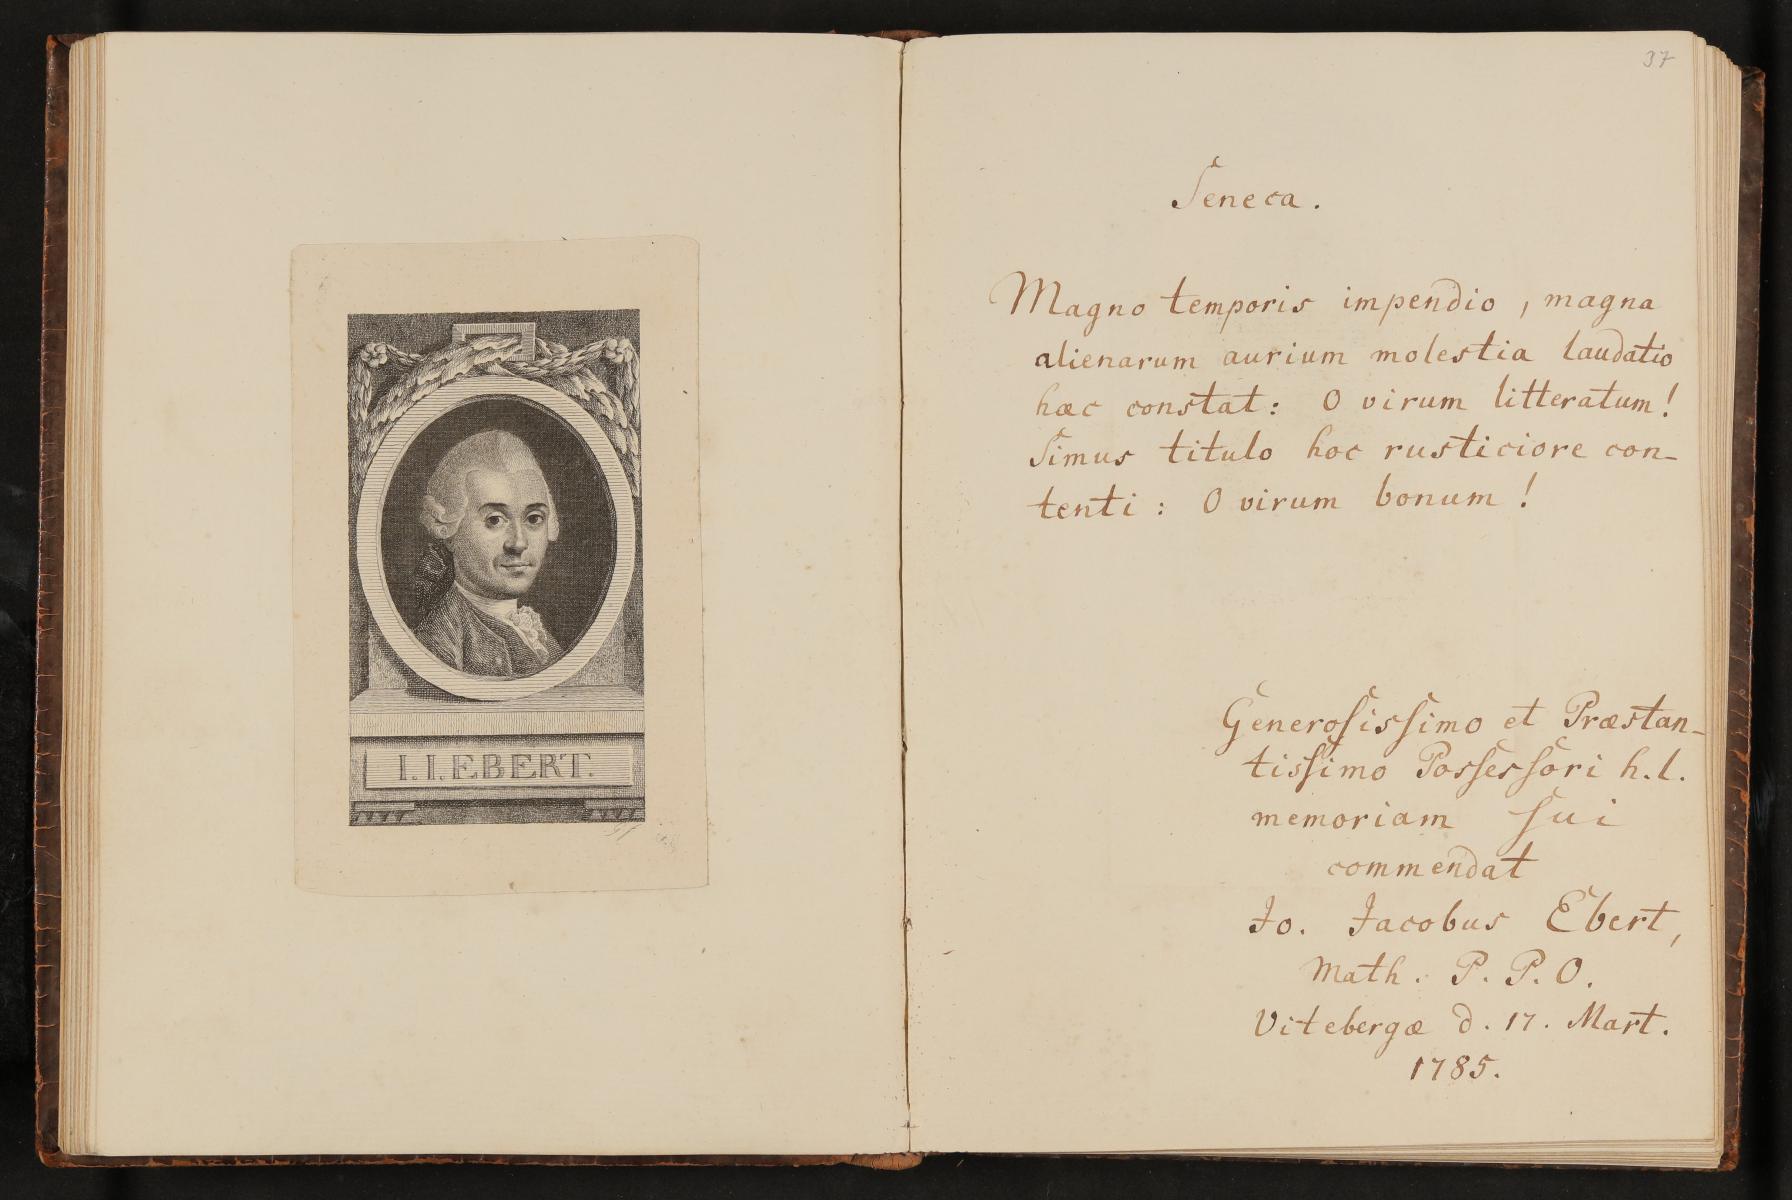 I. I. EBERT.
37
Seneca.
Magno temporis impendio, magna
alienarum aurium molestia laudatio
haec constat: O virum litteratum!
Simus titulo hoc rusticiore con-
tenti: O virum bonum!
Generoſisſimo et Præstan-
tisſimo Posſesſori h. l.
memoriam ſui
commendat
Jo. Jacobus Ebert,
Math. P. P. O.
Vitebergæ d. 17. Mart.
1785.